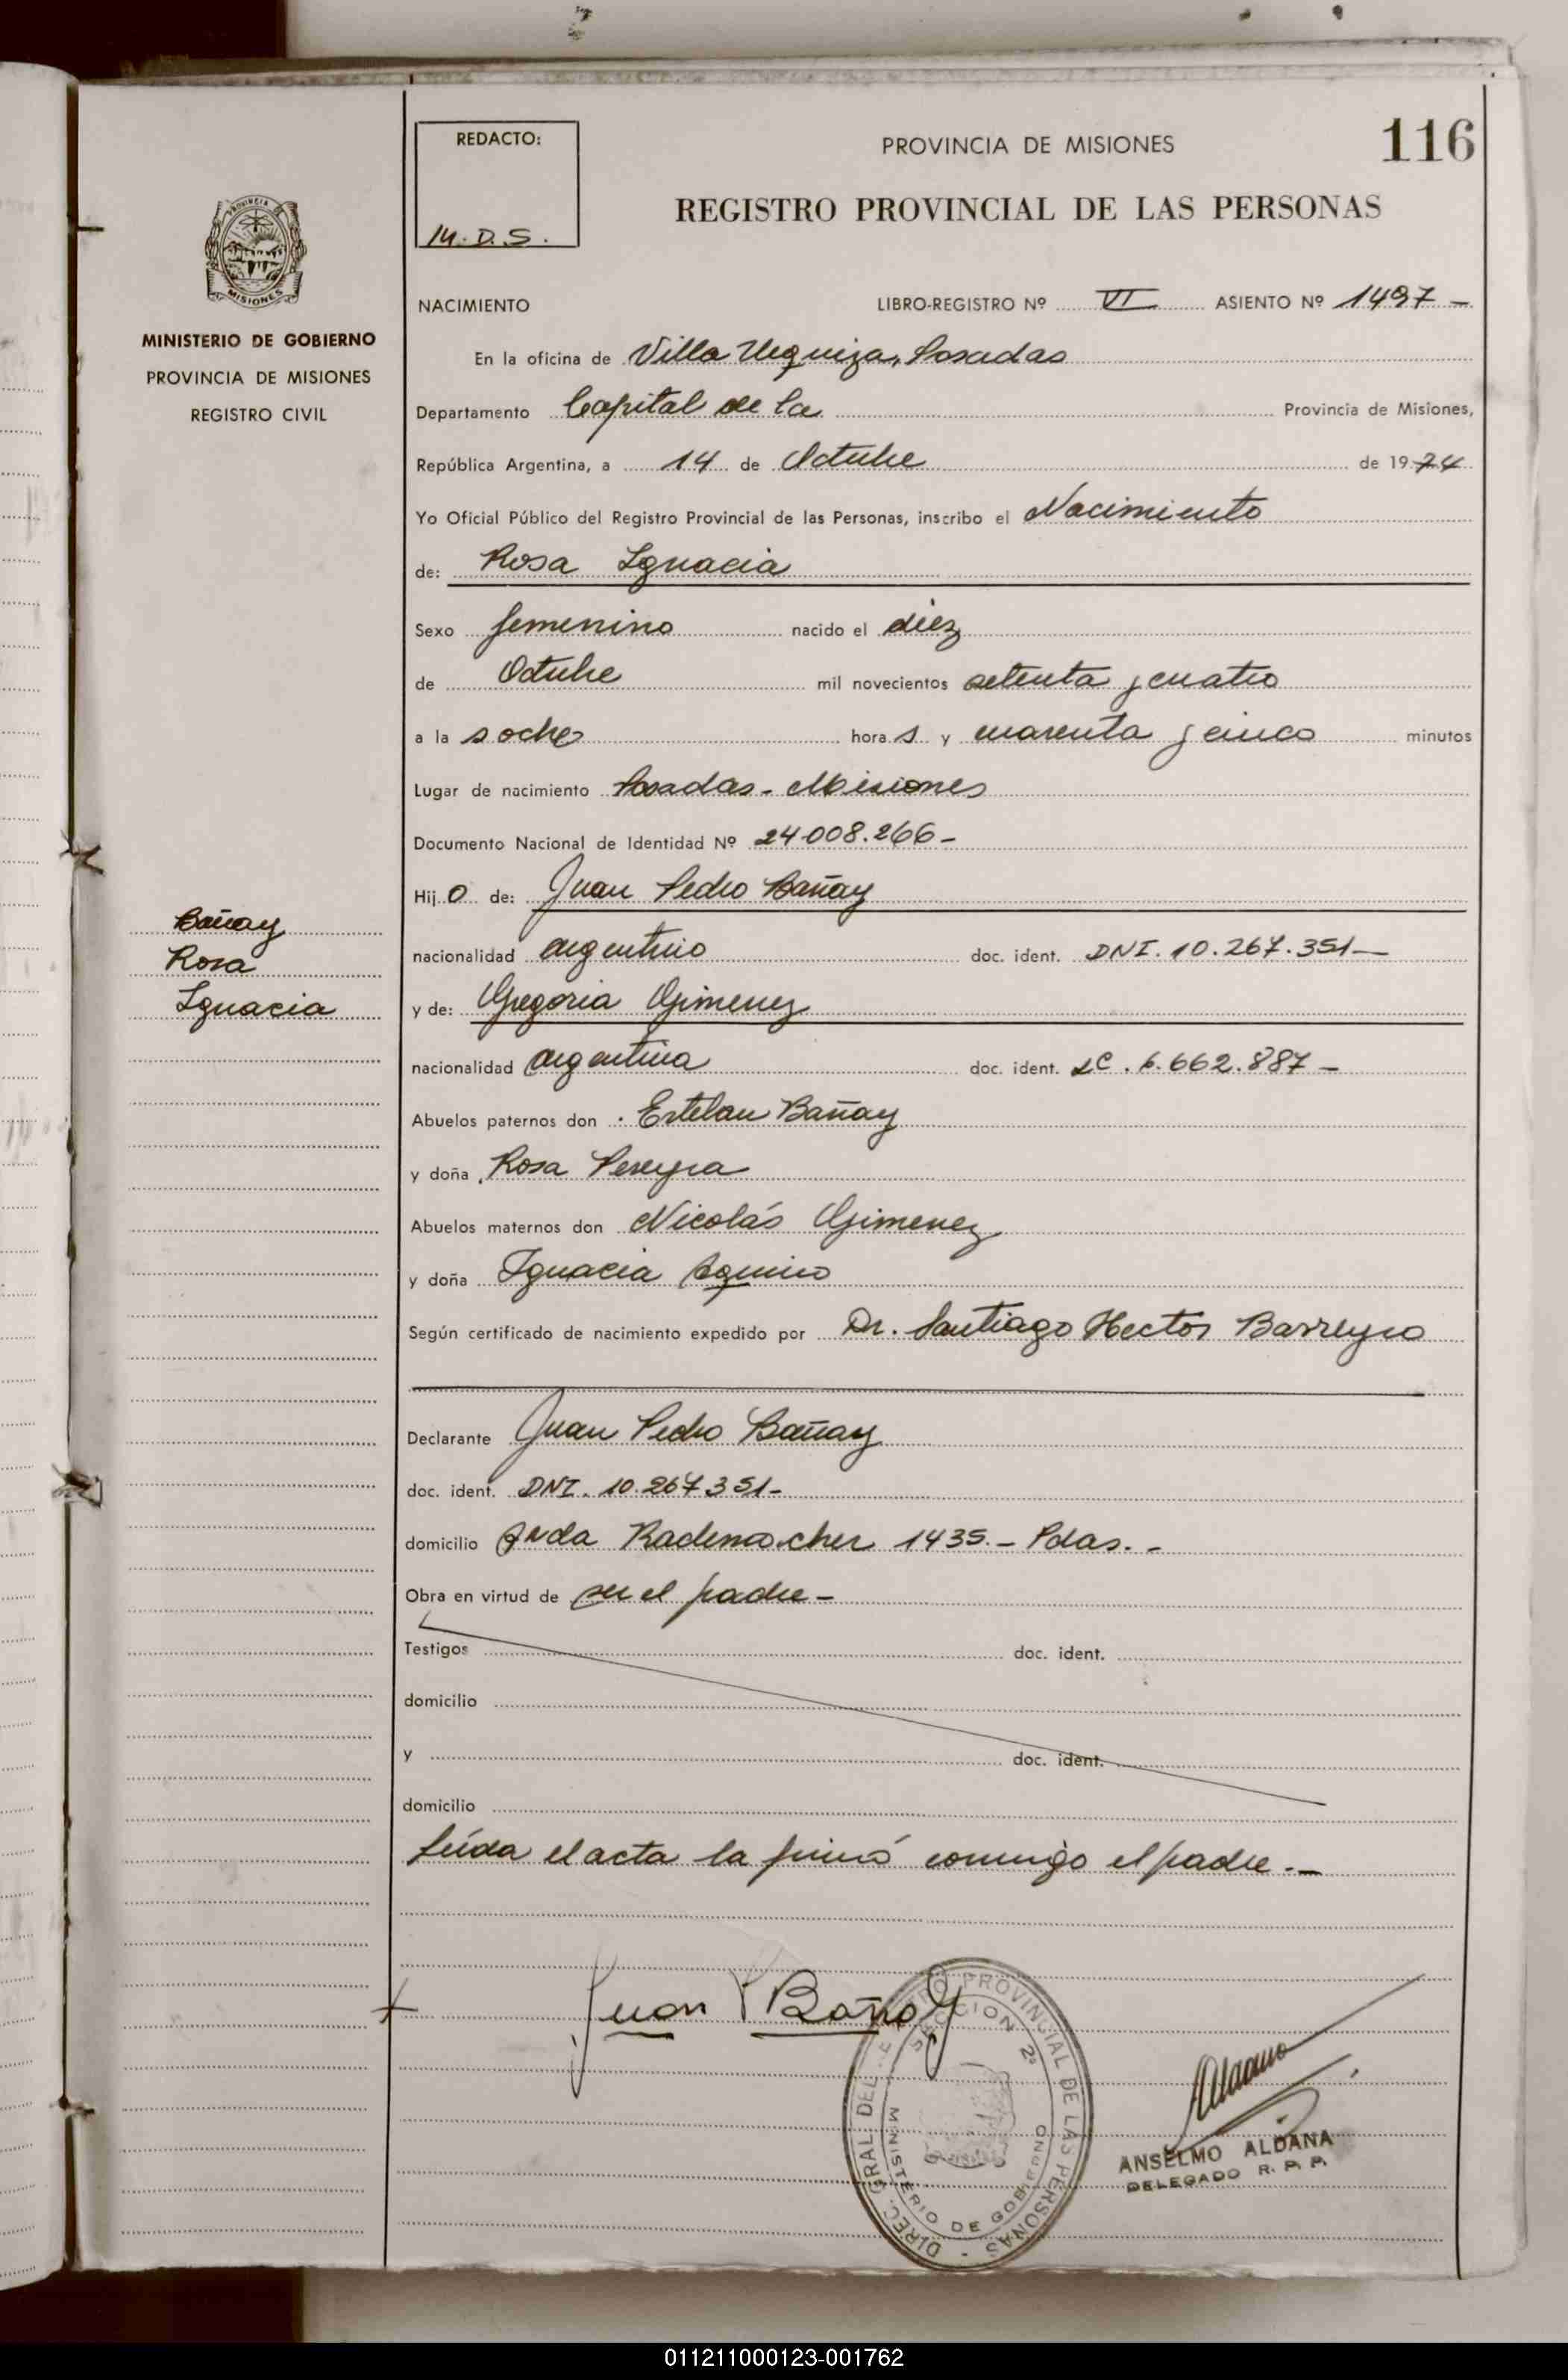 116
REDACTO:
M.D.S.
PROVINCIA DE MISIONES
REGISTRO PROVINCIAL DE LAS PERSONAS
PROVINCIA DE
MISIONES
MINISTERIO DE GOBIERNO
PROVINCIA DE MISIONES
REGISTRO CIVIL
NACIMIENTO LIBRO-REGISTRO Nº VI ASIENTO Nº 1497 -
En la oficina de Villa Urquiza, Posadas
Departamento Capital de la Provincia de Misiones,
República Argentina, a 14 de Octubre de 1974
Yo Oficial Público del Registro Provincial de las Personas, inscribo el Nacimiento
de: Rosa Ignacia
Sexo femenino nacido el diez
de Octubre mil novecientos setenta y cuatro
a la s oche hora s y cuarenta y cinco minutos
Lugar de nacimiento Posadas - Misiones
Documento Nacional de Identidad Nº 24.008.266 -
Hij o de: Juan Pedro Bañay
Bañay
Rosa
Ignacia
nacionalidad argentino doc. ident. DNI. 10.267.351 -
y de: Gregoria Gimenez
nacionalidad argentina doc. ident. LC. 6.662.887 -
Abuelos paternos don Esteban Bañay
y doña Rosa Pereyra
Abuelos maternos don Nicolás Gimenez
y doña Ignacia Aquino
Según certificado de nacimiento expedido por Dr. Santiago Hector Barreyro
Declarante Juan Pedro Bañay
doc. ident. DNI. 10.267351 -
domicilio Rademacher 1435.- Pdas. -
Obra en virtud de ser el padre -
Testigos doc. ident.
domicilio
y doc. ident.
domicilio
Leída el acta la firmó conmigo el padre. -
Juan P Bañay
DIREC. GRAL. DEL PROVINCIAL DE LAS PERSONAS
SECCION 2ª
MINISTERIO DE GOBIERNO
ANSELMO ALDANA
DELEGADO R. P. P.
011211000123-001762